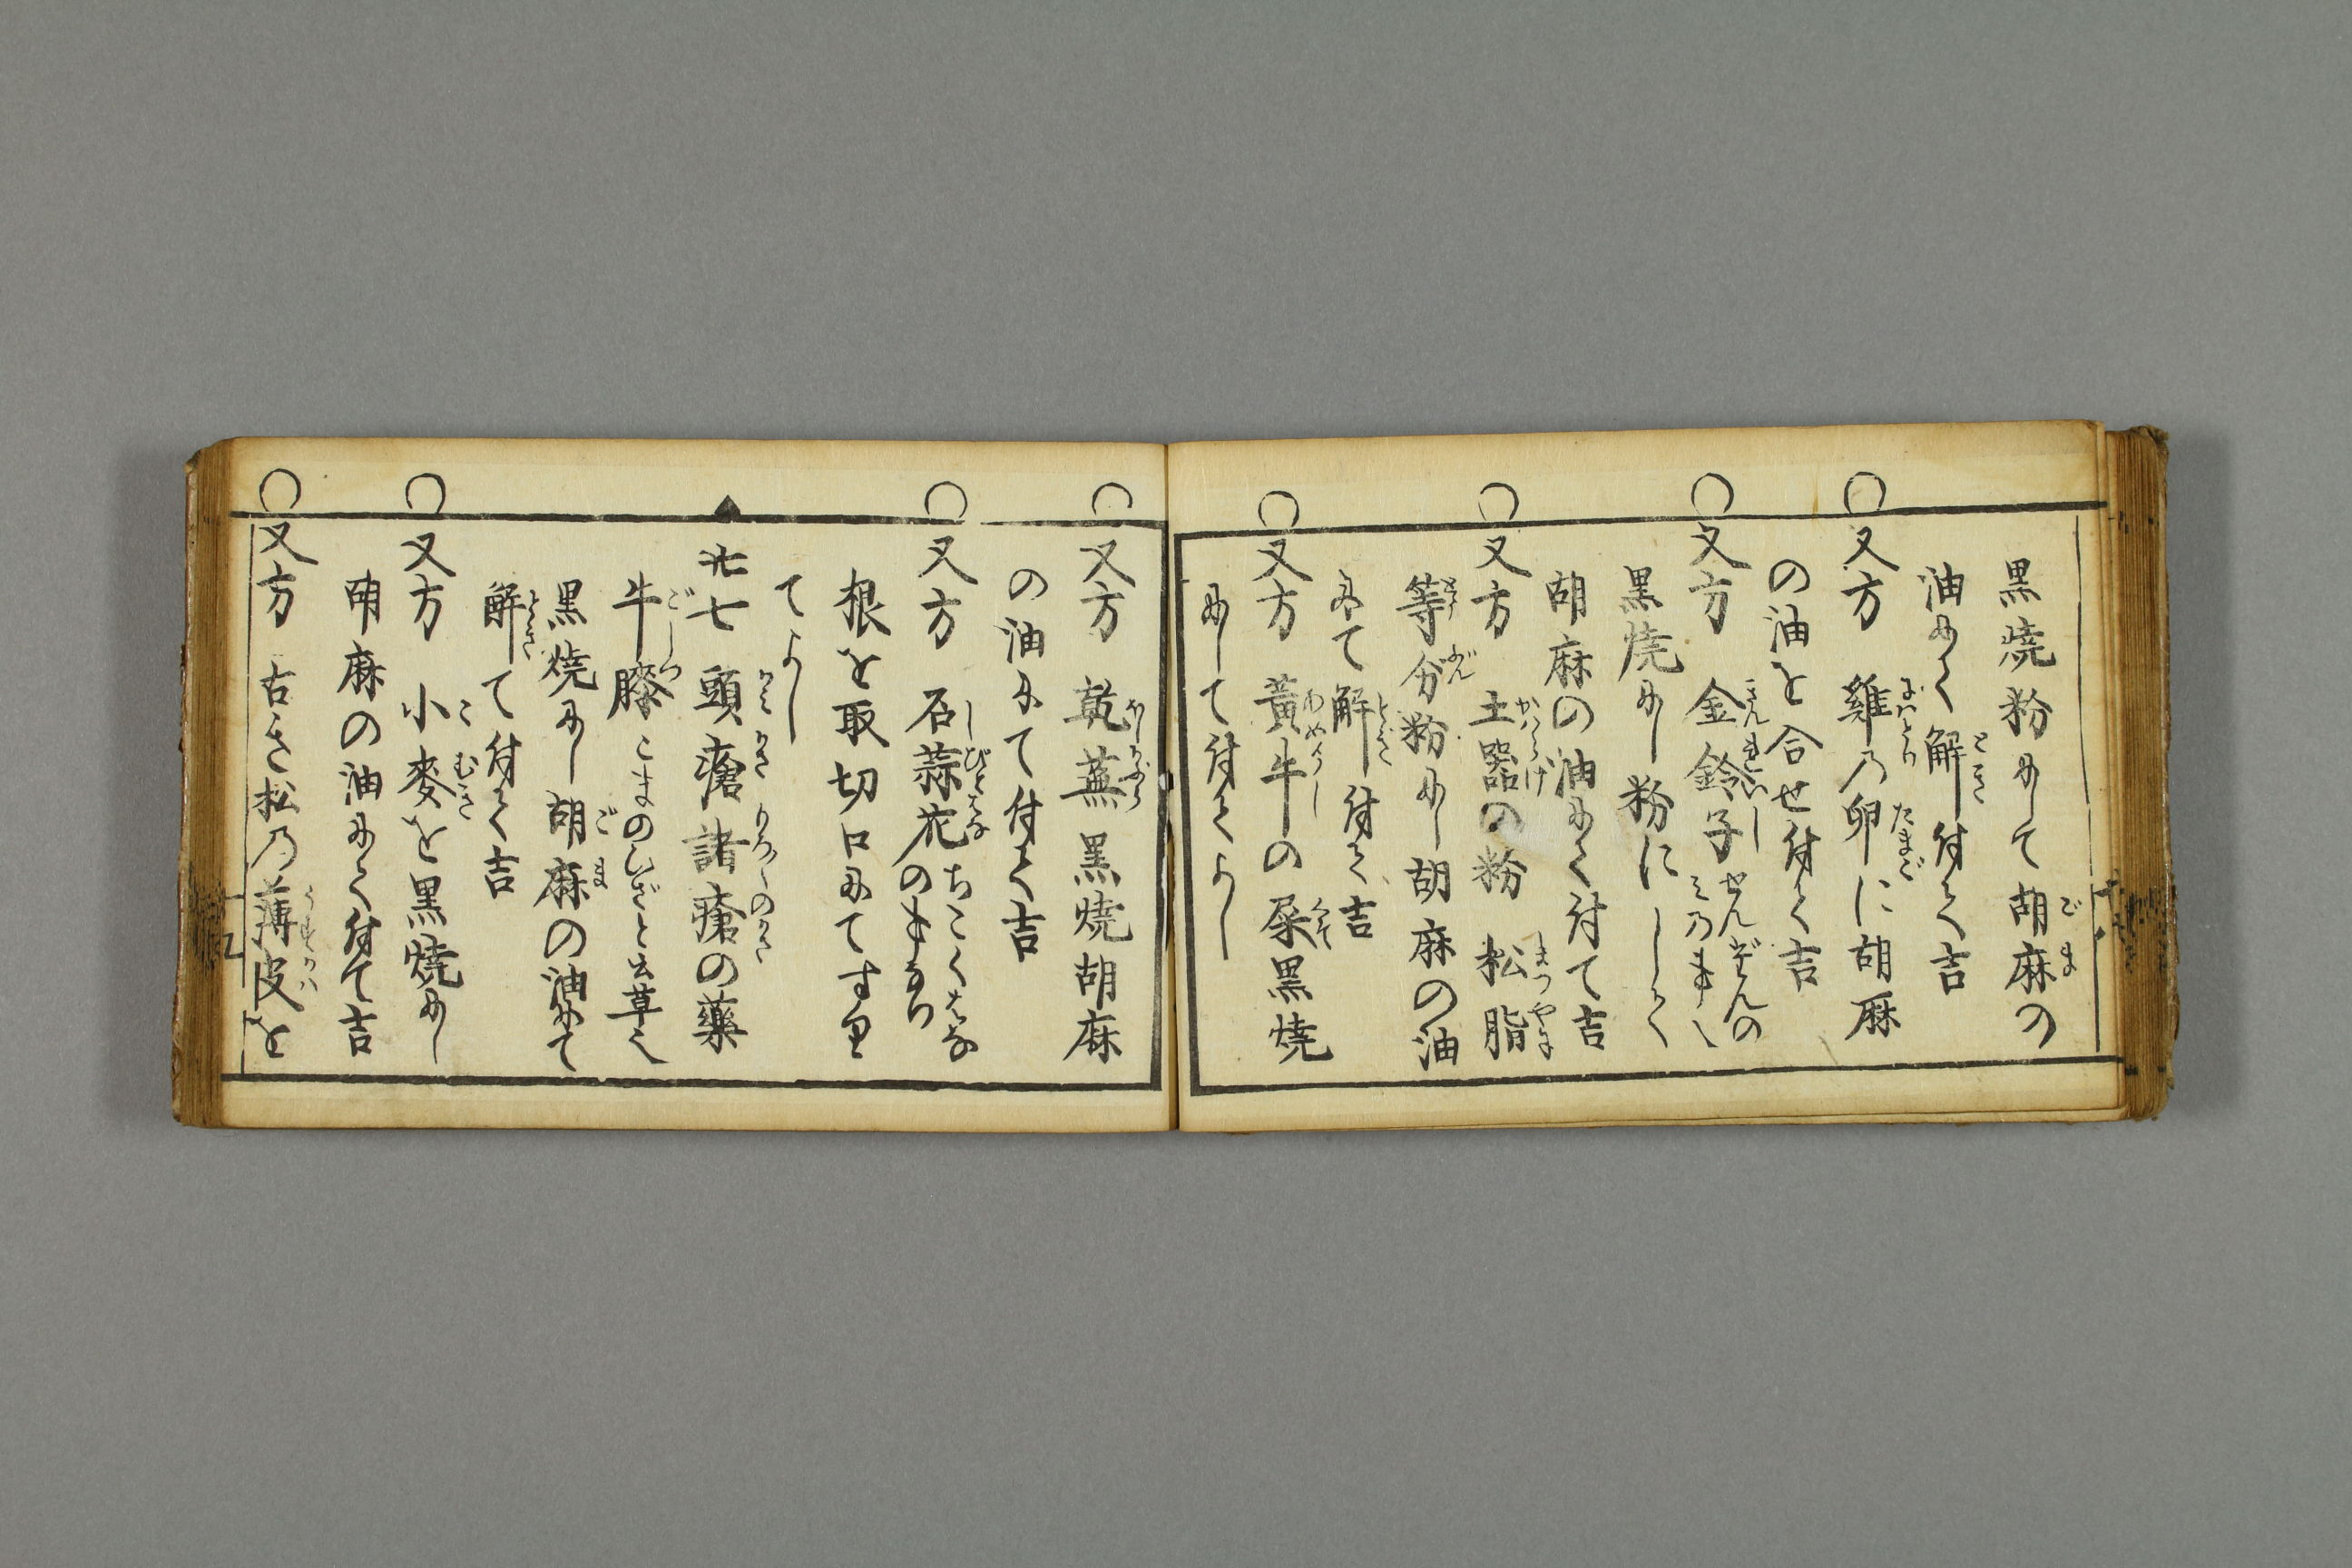 黒焼粉にして胡麻の
油にて解付て吉
○又方 雞乃卵に胡麻
の油を合せ付て吉
○又方 金鈴子 せんだんの ミ乃事
黒焼にし粉にして
胡麻の油にて付て吉
○又方 土器の粉 松脂
等分粉にし胡麻の油
にて解付て吉
○又方 黄牛の屎黒焼
にして付てよし
○又方 乾蕪黒焼胡麻
の油にて付て吉
○又方 石蒜花 ちごくはな の事なり
根を取切口にてすり
てよし
廿七 頭瘡諸瘡の薬
牛膝こまのひざと云草也
黒焼にし胡麻の油にて
解て付て吉
○又方 小麥を黒焼にし
胡麻の油にて付て吉
○又方 古き松乃薄皮を